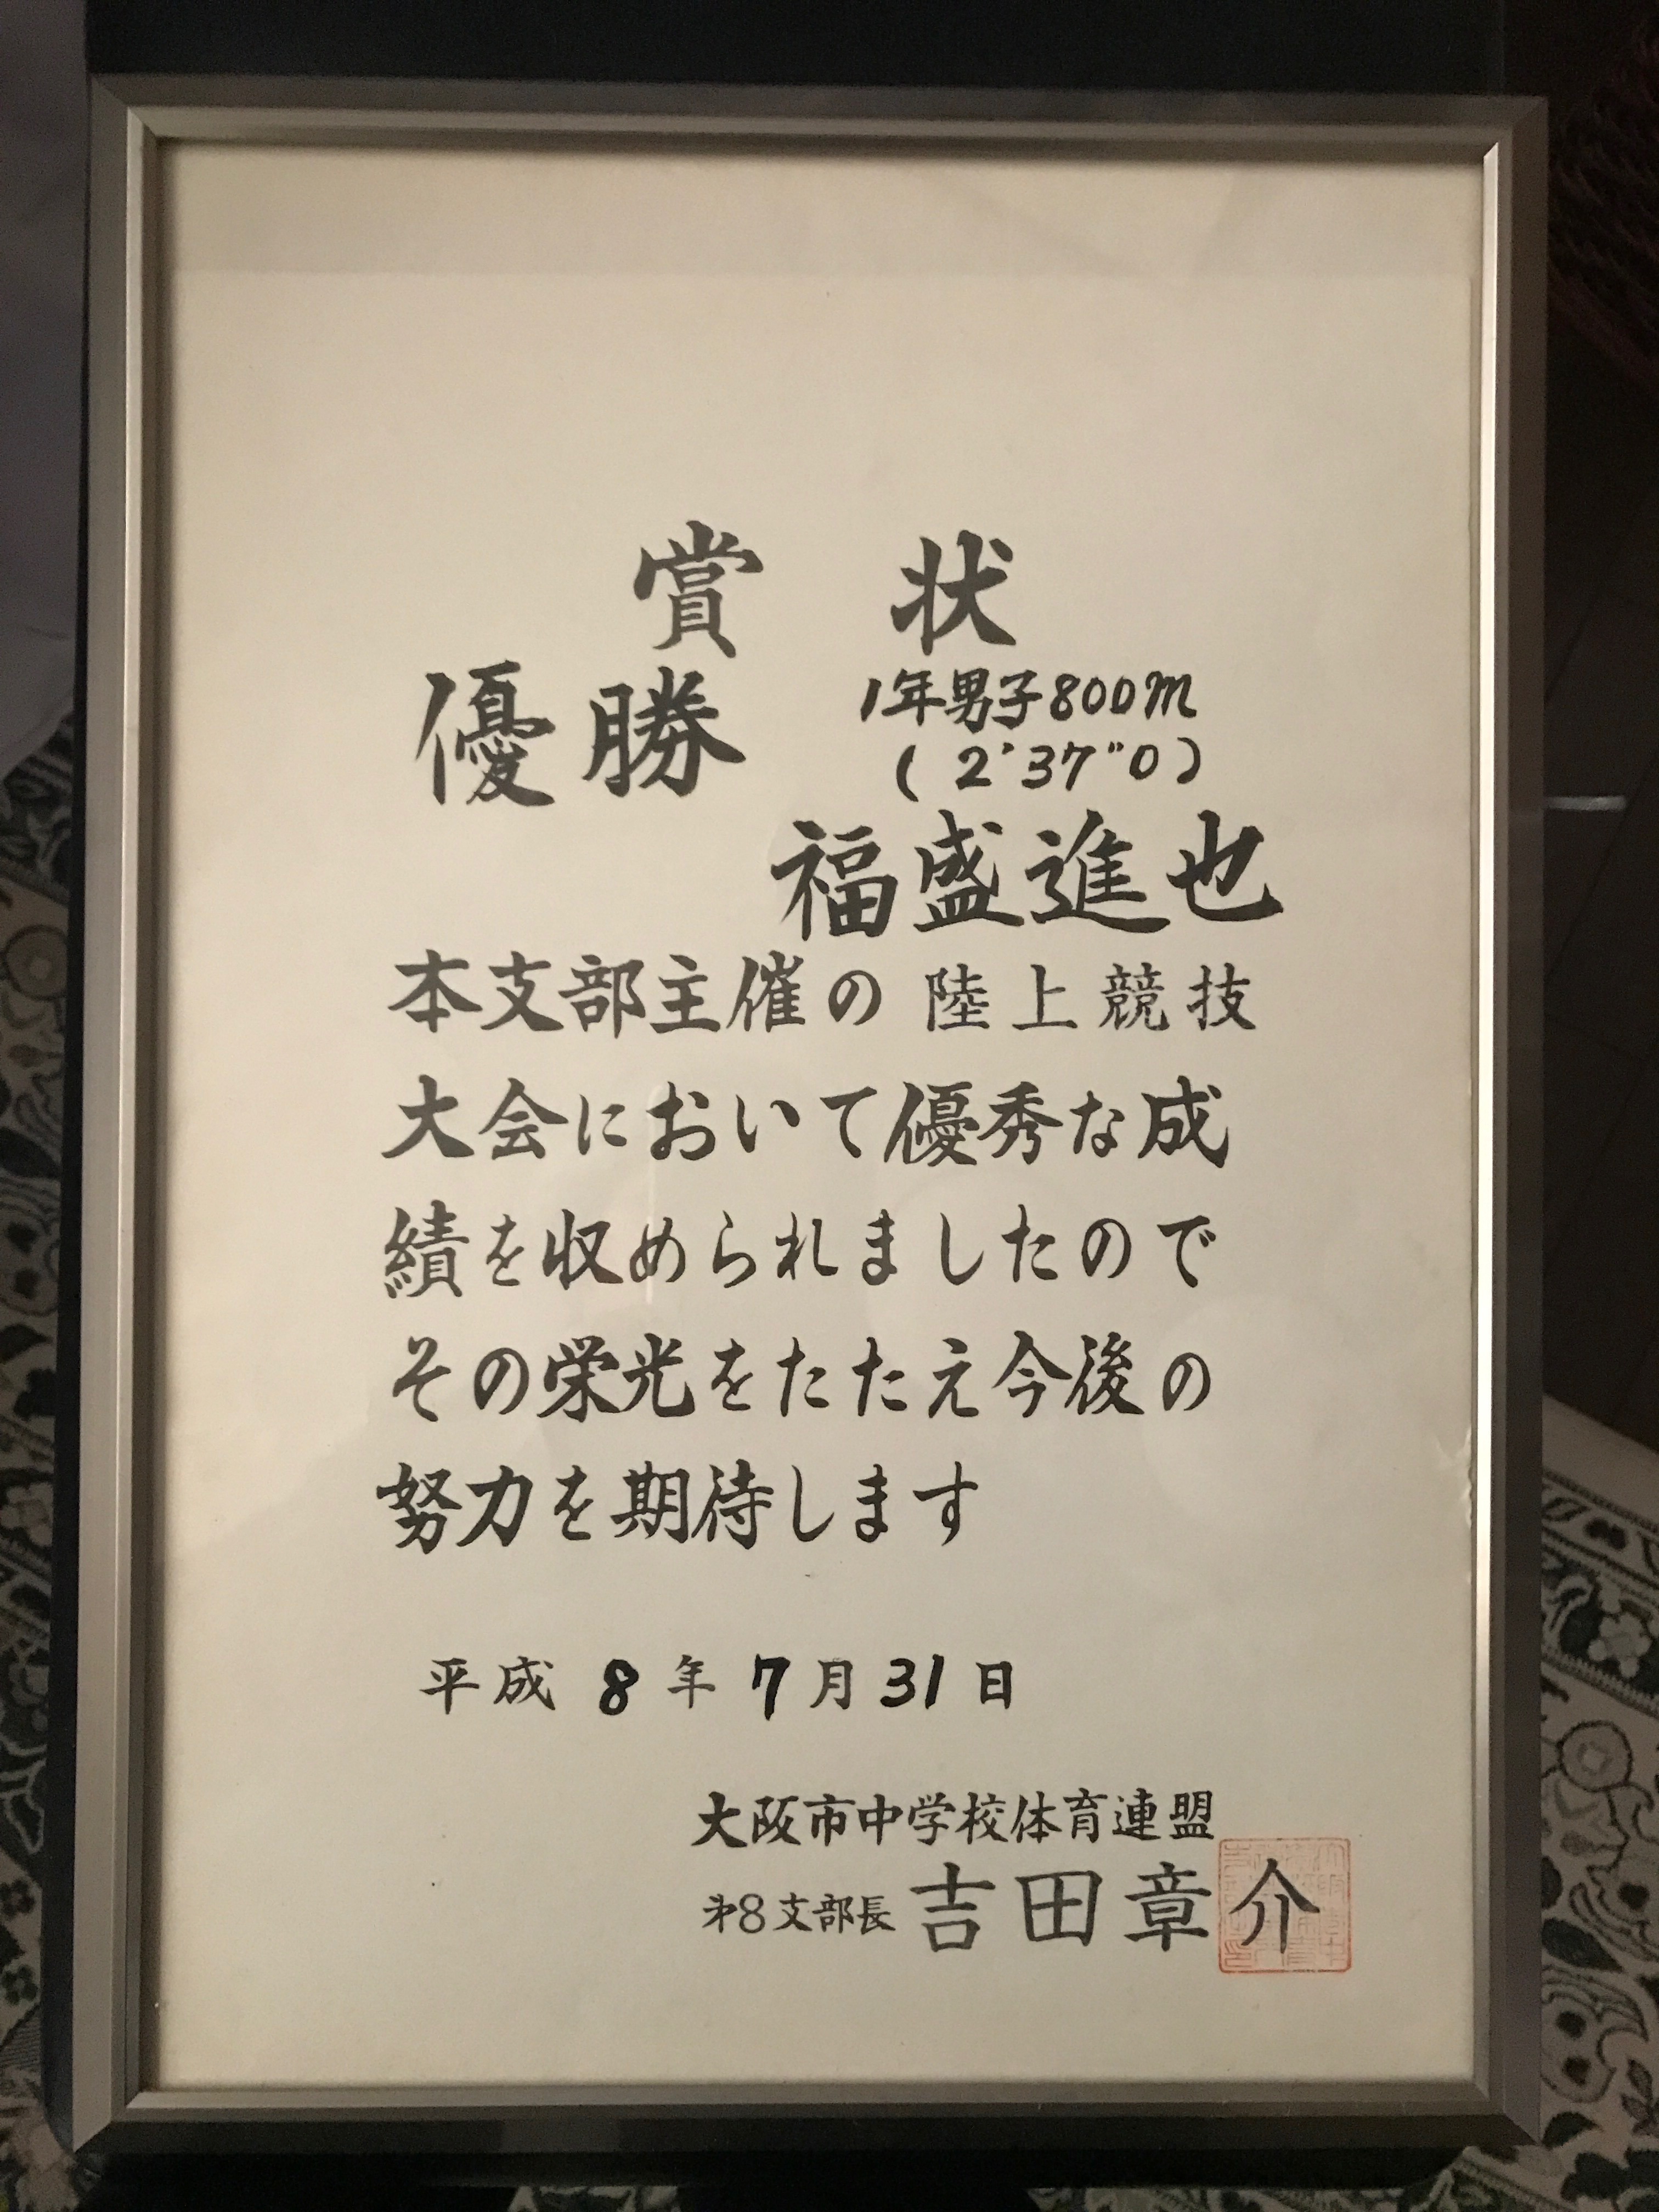 賞状
優勝 1年男子800m
(2'37"0)
福盛進也
本支部主催の 陸上競技
大会において優秀な成
績を収められましたので
その栄光をたたえ今後の
努力を期待します
平成 8 年 7 月 31 日
大阪市中学校体育連盟
第8支部長 吉田章介